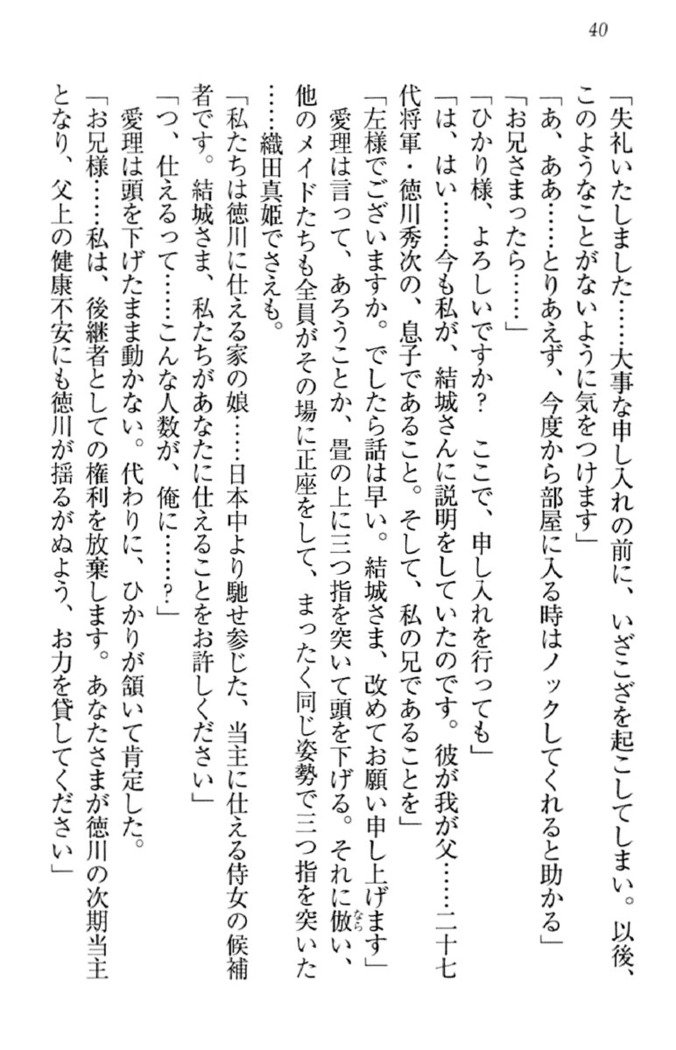 40
「失礼いたしました……大事な申し入れの前に、いざこざを起こしてしまい。以後、
このようなことがないように気をつけます」
「あ、ああ……とりあえず、今度から部屋に入る時はノックしてくれると助かる」
「お兄さまったら……」
「ひかり様、よろしいですか?　ここで、申し入れを行っても」
「は、はい……今も私が、結城さんに説明をしていたのです。彼が我が父……二十七
代将軍・徳川秀次の、息子であること。そして、私の兄であることを」
「左様でございますか。でしたら話は早い。結城さま、改めてお願い申し上げます」
愛理は言って、あろうことか、畳の上に三つ指を突いて頭を下げる。それに倣い、
なら
他のメイドたちも全員がその場に正座をして、まったく同じ姿勢で三つ指を突いた
……織田真姫でさえも。
「私たちは徳川に仕える家の娘……日本中より馳せ参じた、当主に仕える侍女の候補
者です。結城さま、私たちがあなたに仕えることをお許しください」
「つ、仕えるって……こんな人数が、俺に……?」
愛理は頭を下げたまま動かない。代わりに、ひかりが頷いて肯定した。
「お兄様……私は、後継者としての権利を放棄します。あなたさまが徳川の次期当主
となり、父上の健康不安にも徳川が揺るがぬよう、お力を貸してください」